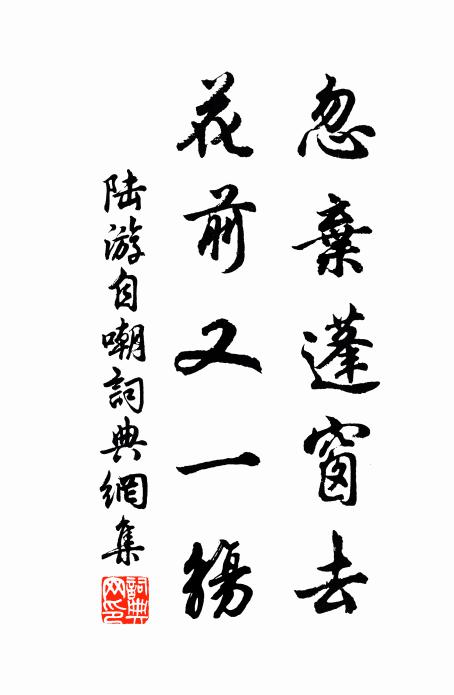 忽棄蓬窗去
花前又一觴
陸游自嘲詞典網集
詞典网印